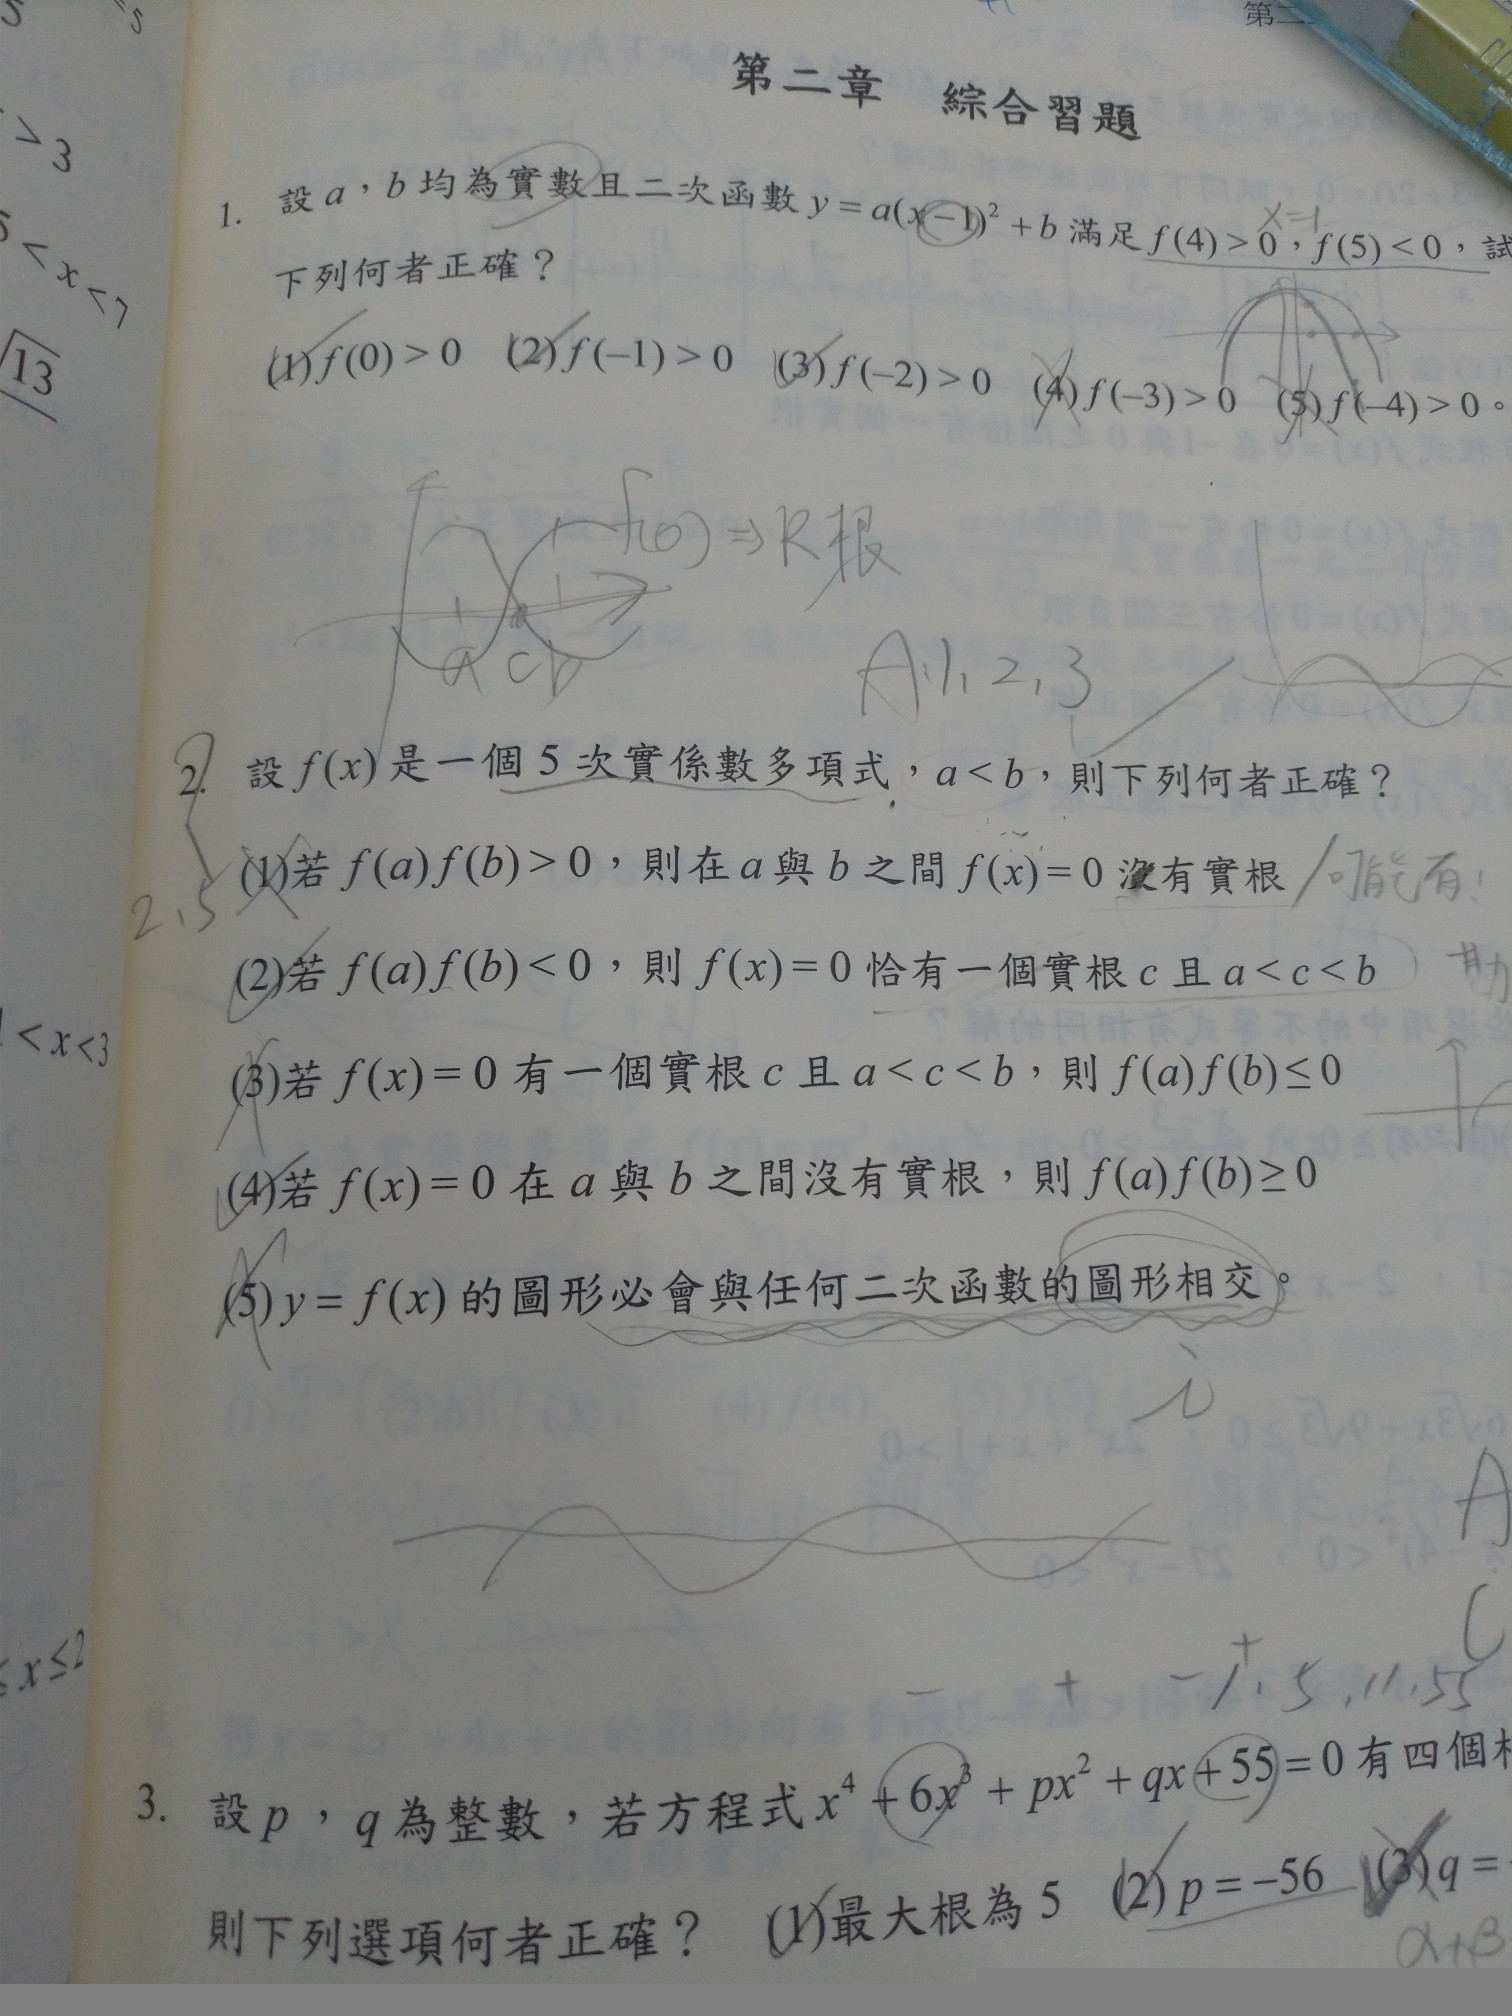 第二
第二章 綜合習題
>3
<x<7
√13
1. 設 a，b 均為實數且二次函數 y=a(x−1)²+b 滿足 f(4)>0，f(5)<0，試
x=1
下列何者正確？
(1) f(0)>0 (2) f(−1)>0 (3) f(−2)>0 (4) f(−3)>0 (5) f(−4)>0。
f(0)⇒R根
a c b
A:1,2,3
2. 設 f(x) 是一個 5 次實係數多項式，a<b，則下列何者正確？
(1)若 f(a)f(b)>0，則在 a 與 b 之間 f(x)=0 沒有實根 可能有!
2,5
(2)若 f(a)f(b)<0，則 f(x)=0 恰有一個實根 c 且 a<c<b 勘
<x<3
(3)若 f(x)=0 有一個實根 c 且 a<c<b，則 f(a)f(b)≤0
(4)若 f(x)=0 在 a 與 b 之間沒有實根，則 f(a)f(b)≥0
(5) y=f(x) 的圖形必會與任何二次函數的圖形相交。
i
A
≤x≤2
− + − + 1,5,11,55
3. 設 p，q 為整數，若方程式 x⁴+6x³+px²+qx+55=0 有四個
則下列選項何者正確？ (1)最大根為 5 (2) p=−56 (3) q=
α+β